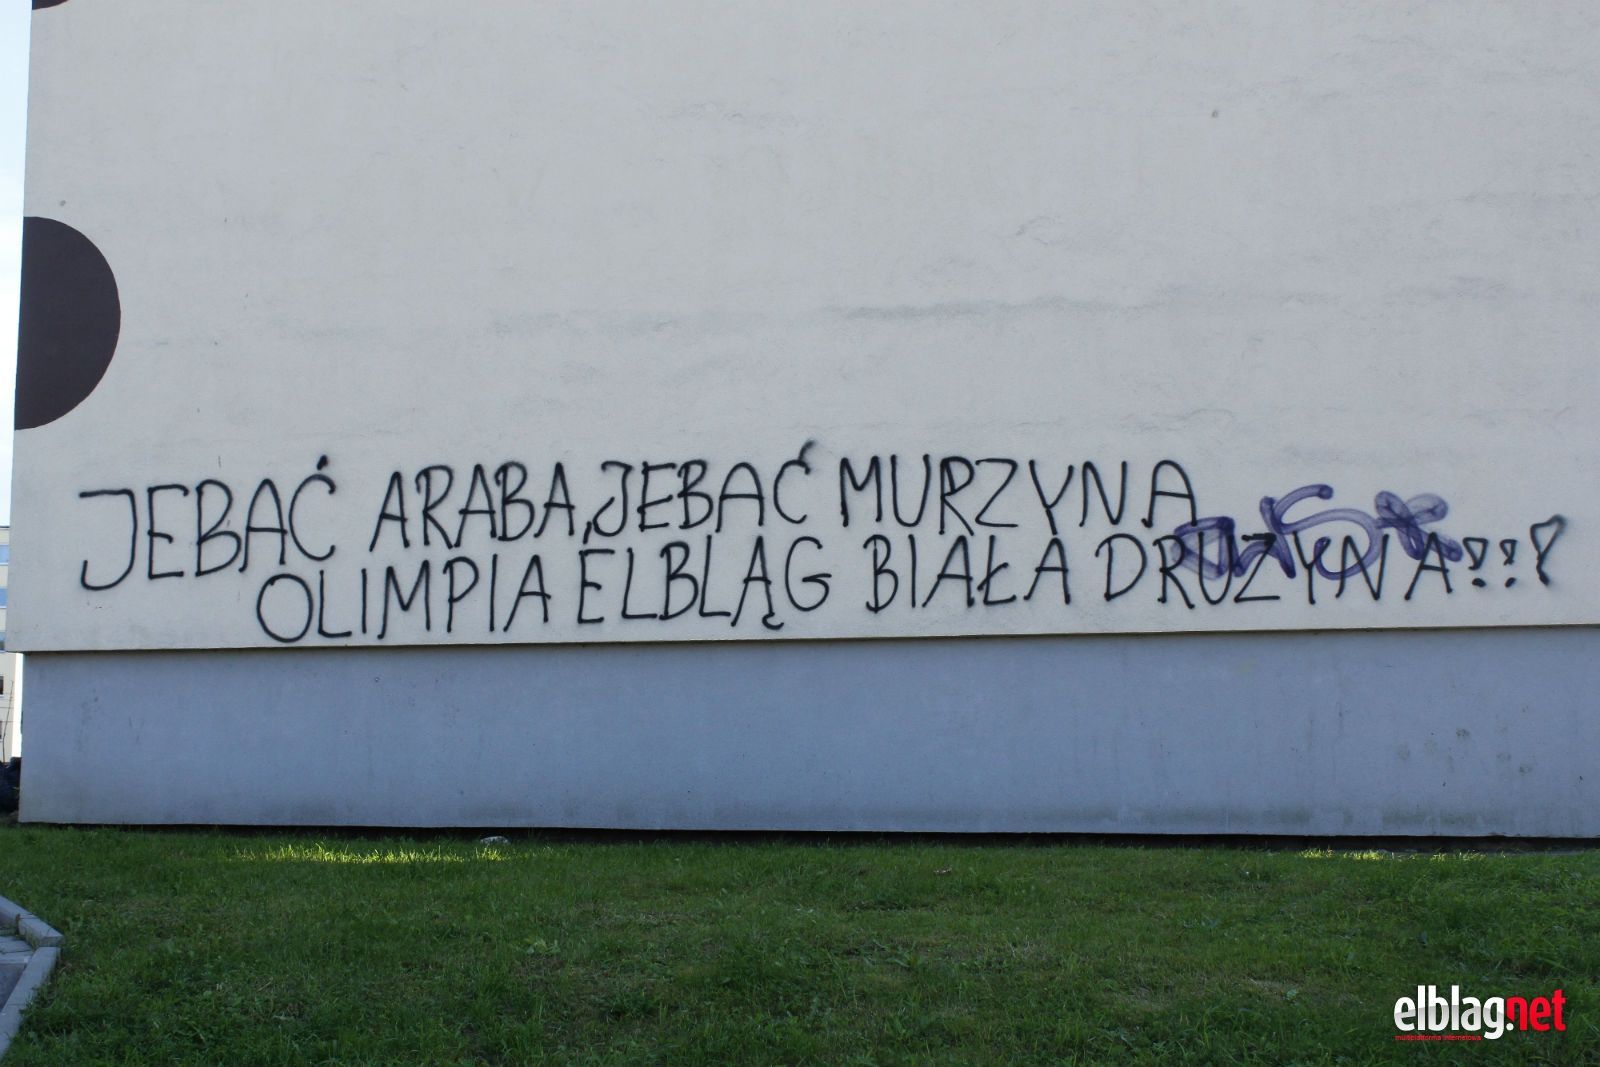 JEBAĆ ARABA, JEBAĆ MURZYNA
OLIMPIA ELBLĄG BIAŁA DRUZYNA!!!
elblag.net
multiplatforma internetowa